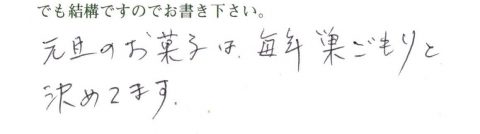 でも結構ですのでお書き下さい。
元旦のお菓子は、毎年巣ごもりと
決めてます。